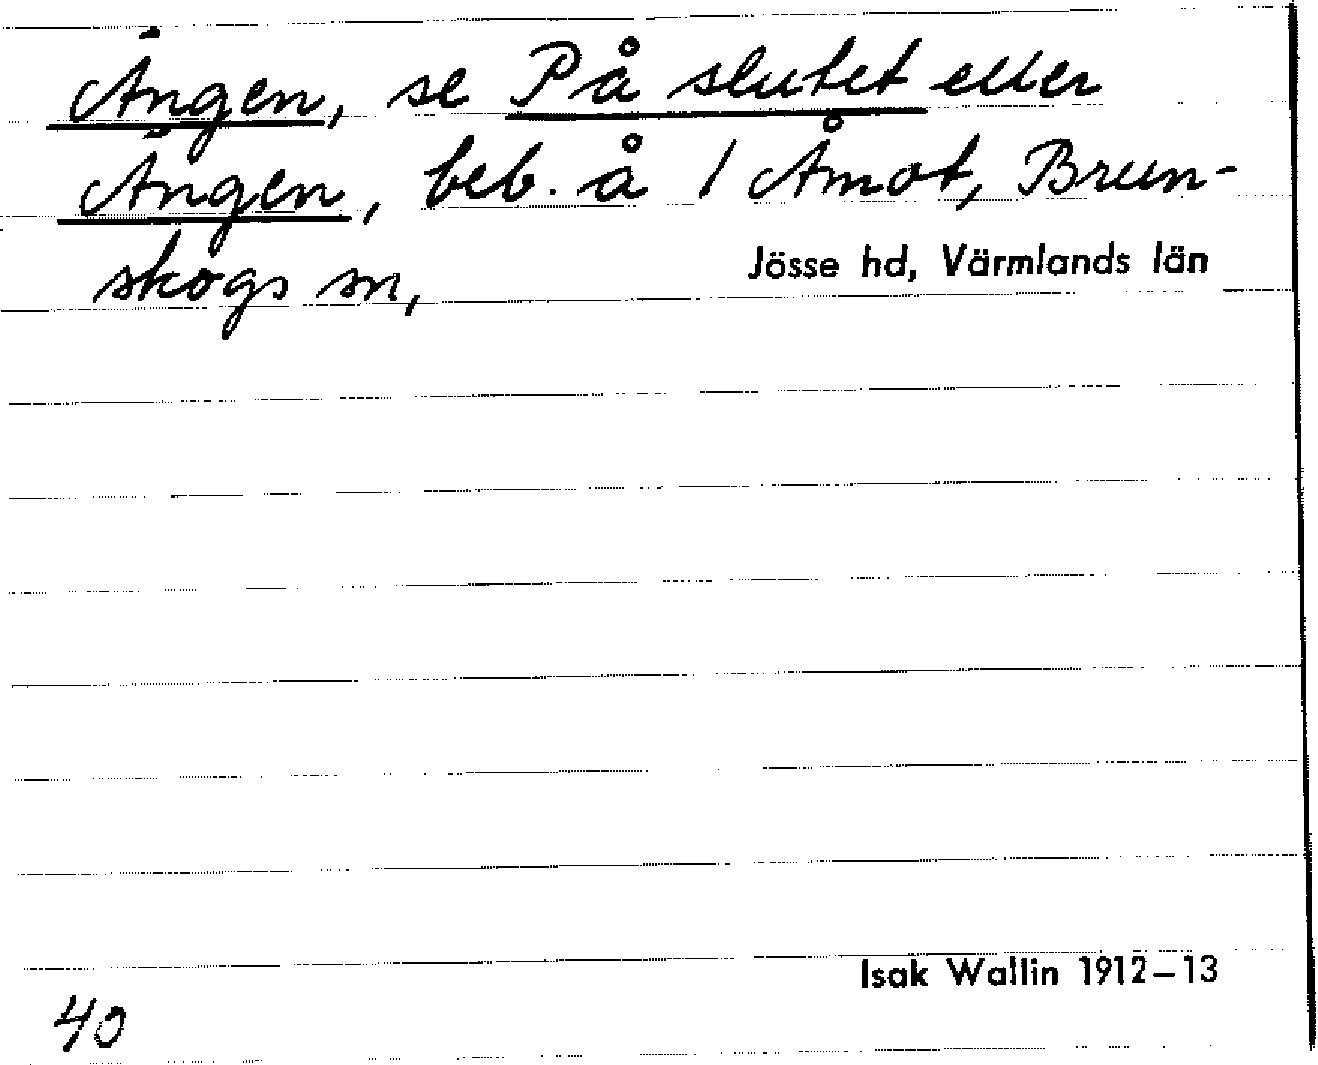 Ängen, se På slutet eller
Ängen, beb. å 1 Åmot, Brun-
skogs sn,
Jösse hd, Värmlands län
Isak Wallin 1912–13
40